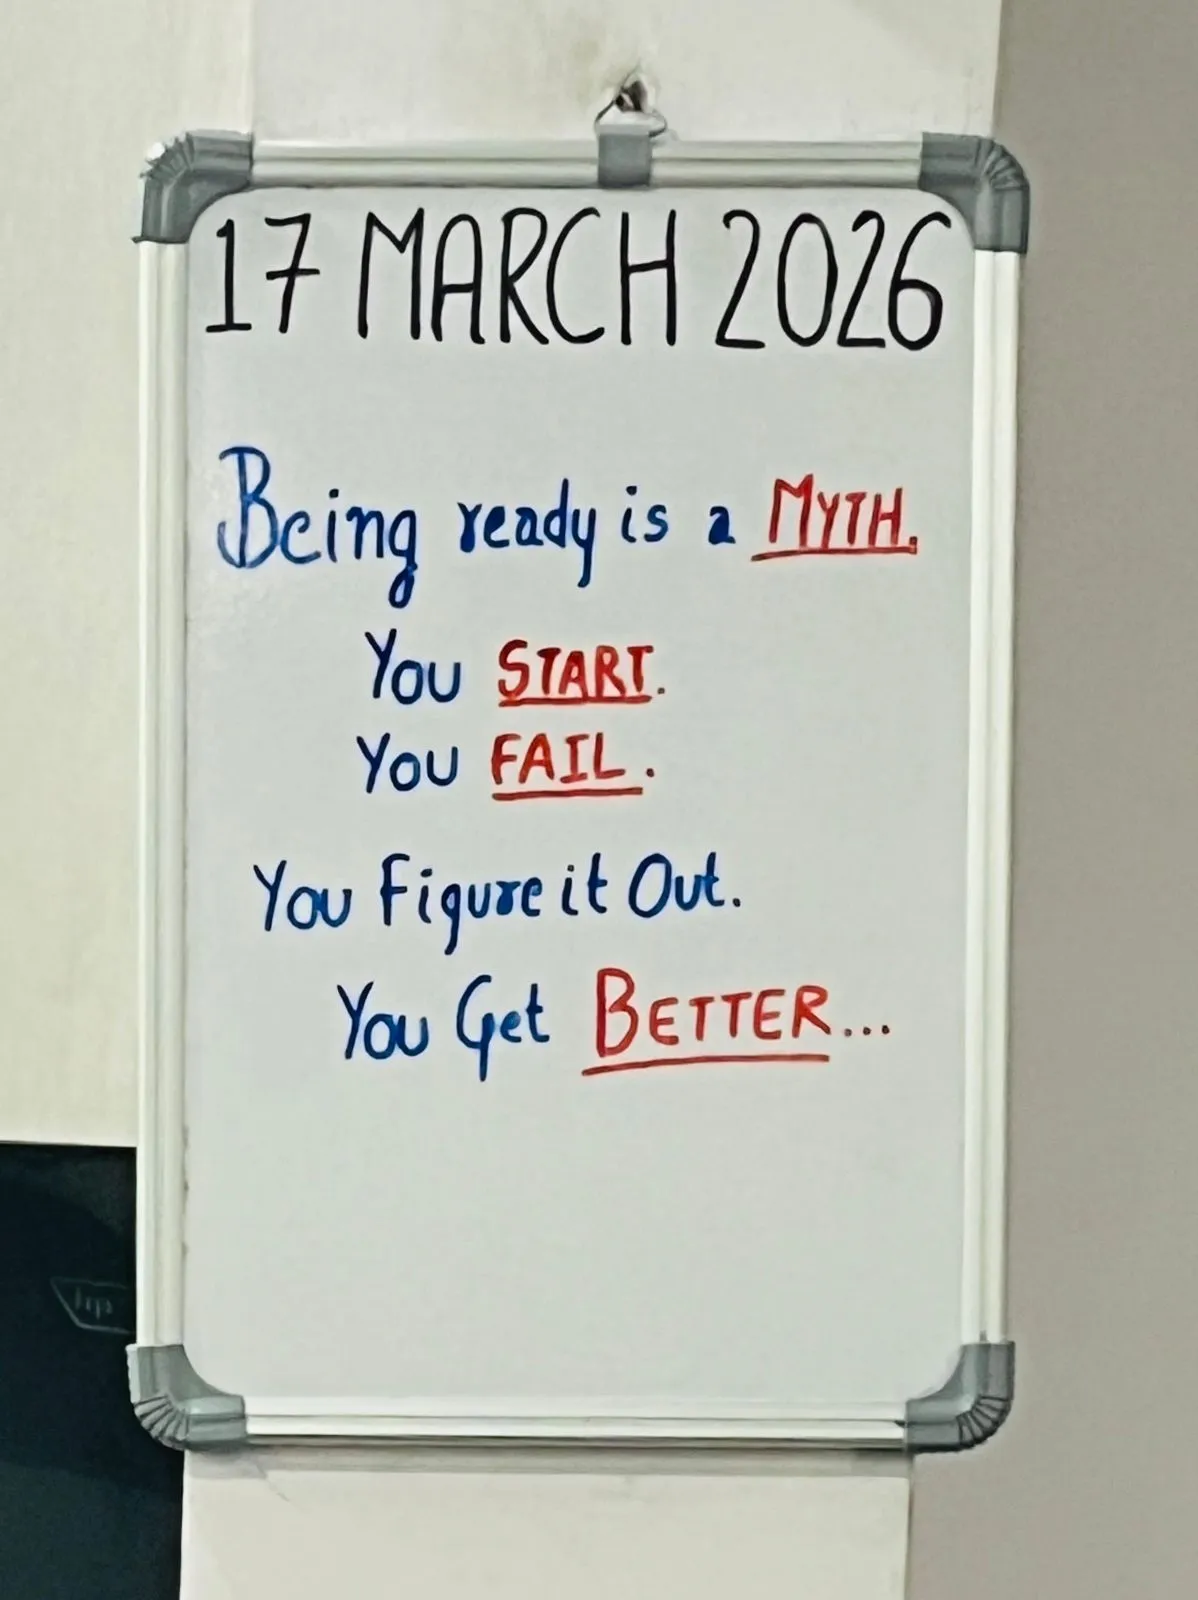 17 MARCH 2026
Being ready is a MYTH.
You START.
You FAIL.
You Figure it Out.
You Get BETTER...
hp